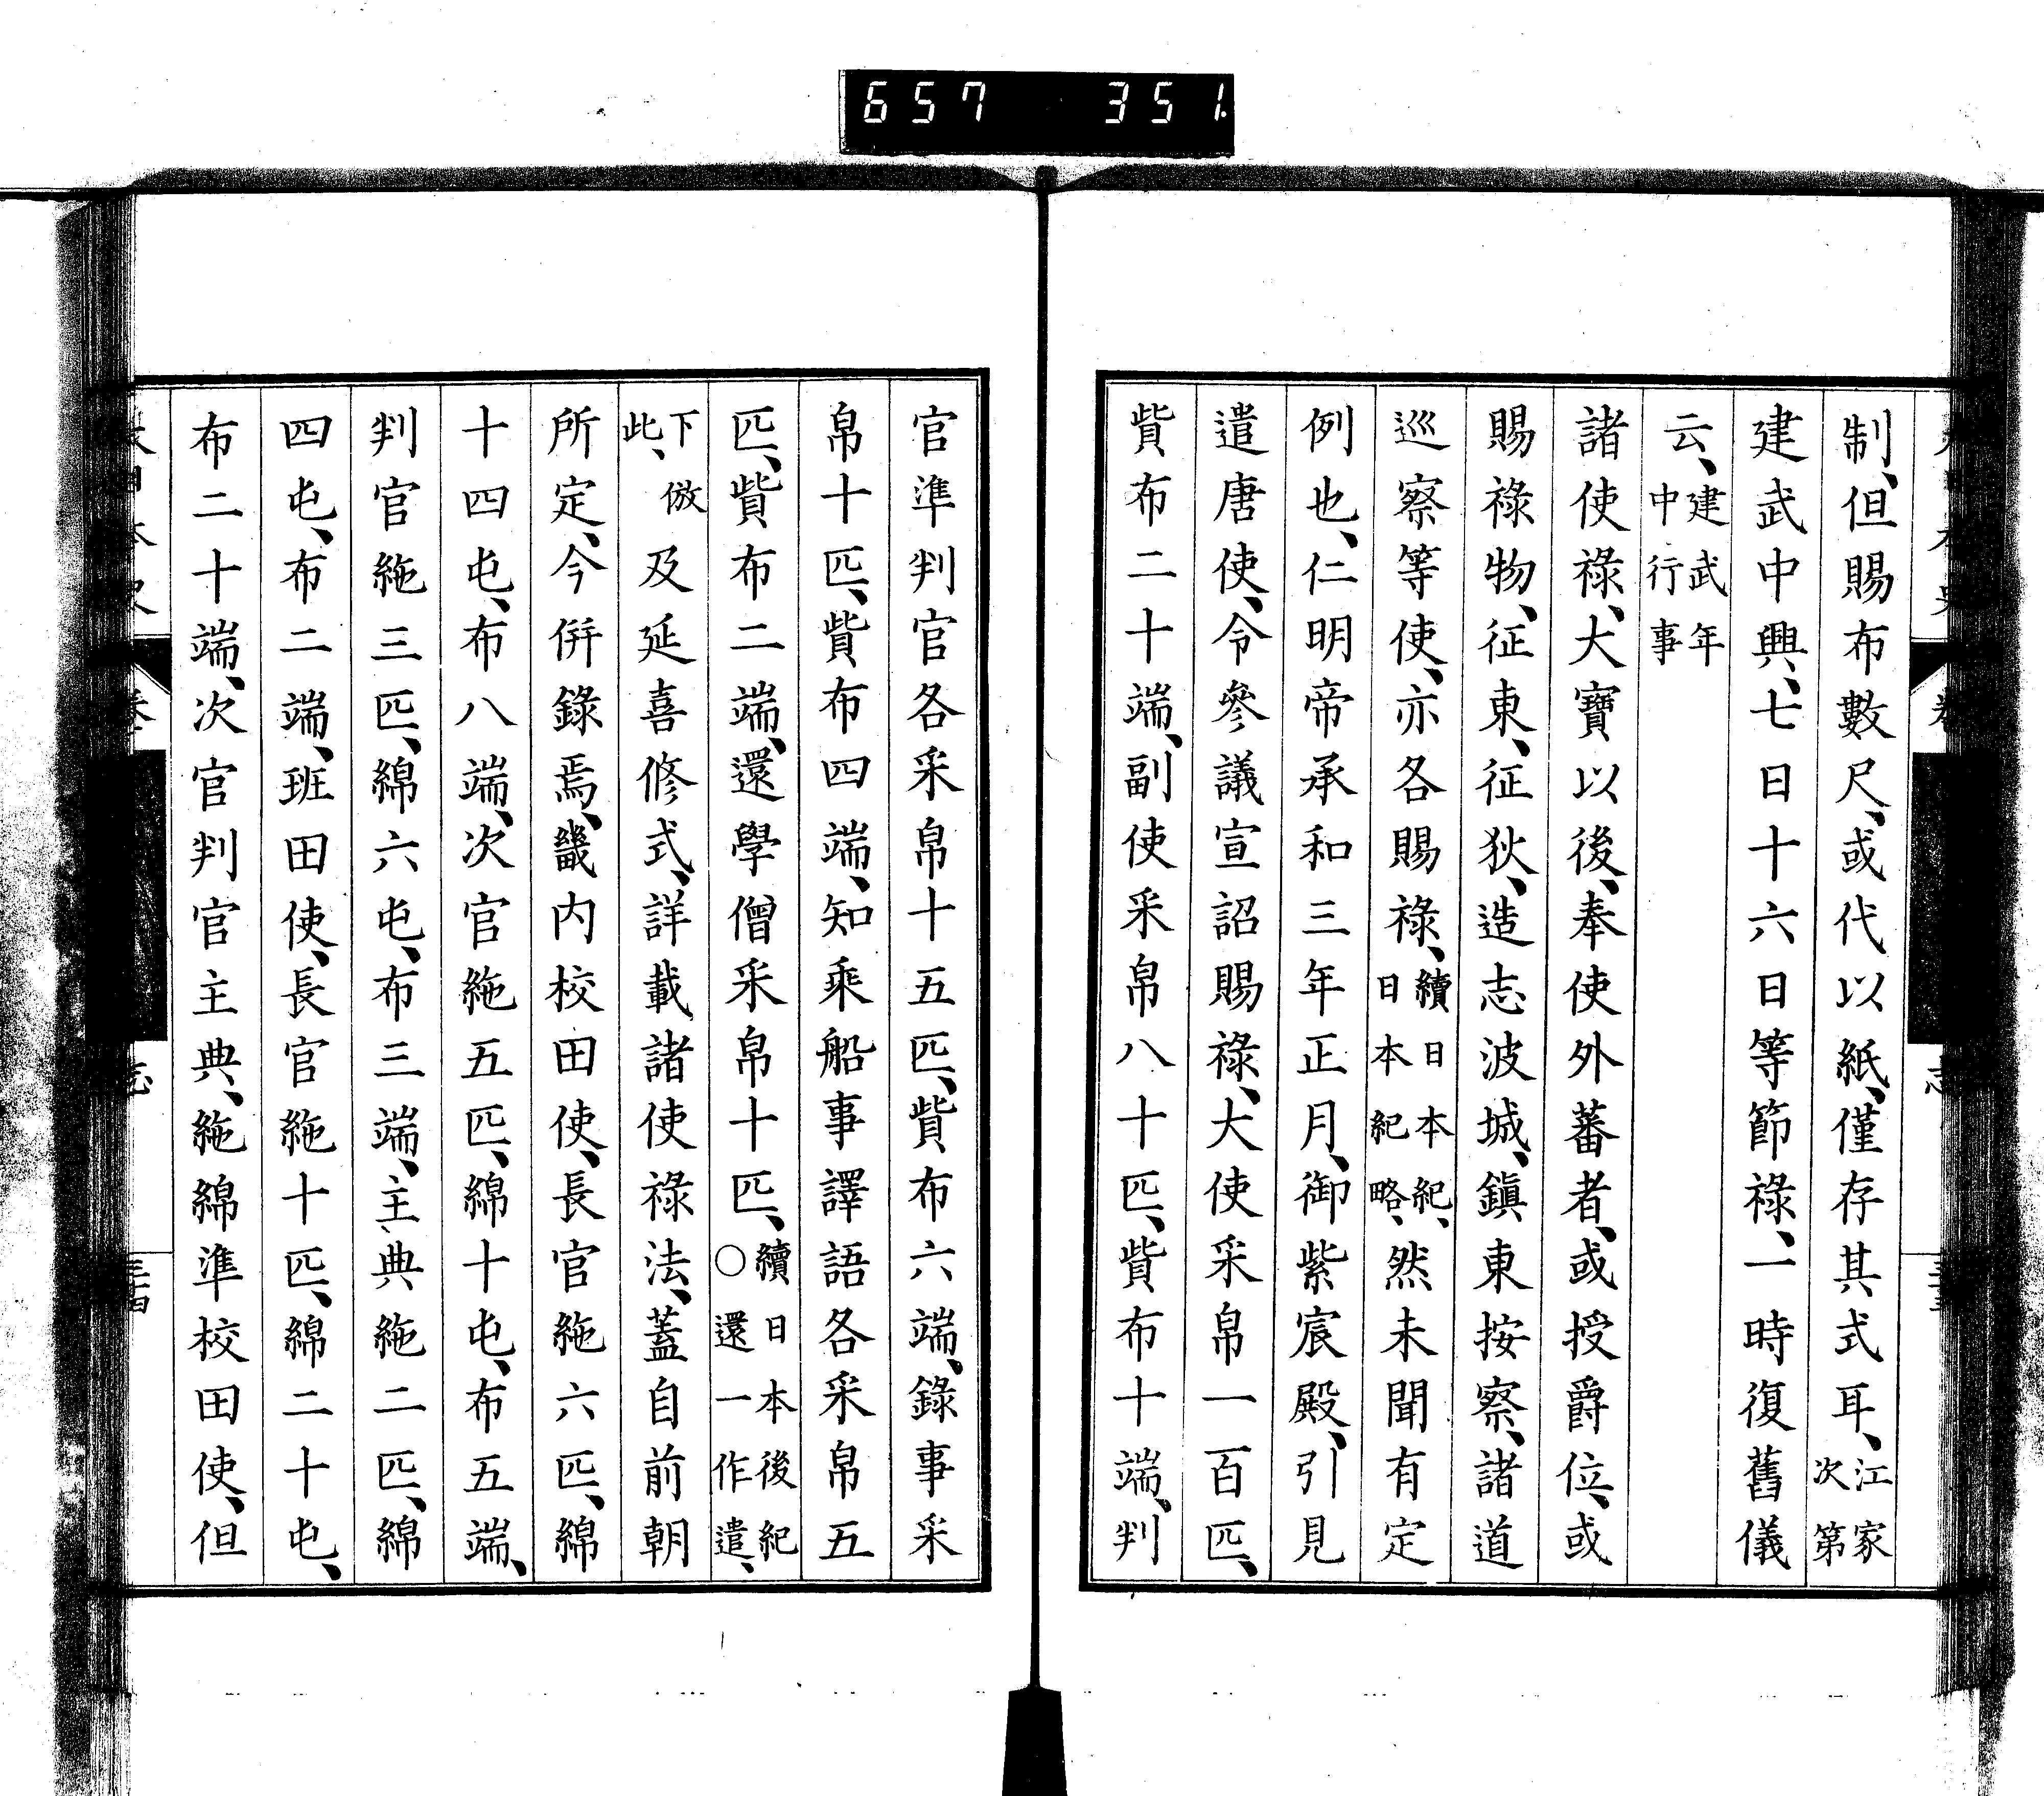 657 351
制、但賜布數尺、或代以紙、僅存其式耳、江家次第
建武中興、七日十六日等節祿、一時復舊儀
云、建武年中行事
諸使祿、大寶以後、奉使外蕃者、或授爵位、或
賜祿物、征東、征狄、造志波城、鎭東按察、諸道
巡察等使、亦各賜祿、續日本紀、日本紀略、然未聞有定
例也、仁明帝承和三年正月、御紫宸殿、引見
遣唐使、令參議宣詔賜祿、大使采帛一百匹、
貲布二十端、副使采帛八十匹、貲布十端、判
官準判官各采帛十五匹、貲布六端、錄事采
帛十匹、貲布四端、知乘船事譯語各采帛五
匹、貲布二端、還學僧采帛十匹、續日本後紀○還一作遣、
下倣此、及延喜修式、詳載諸使祿法、蓋自前朝
所定、今倂錄焉、畿内校田使、長官絁六匹、綿
十四屯、布八端、次官絁五匹、綿十屯、布五端、
判官絁三匹、綿六屯、布三端、主典絁二匹、綿
四屯、布二端、班田使、長官絁十匹、綿二十屯、
布二十端、次官判官主典、絁綿準校田使、但